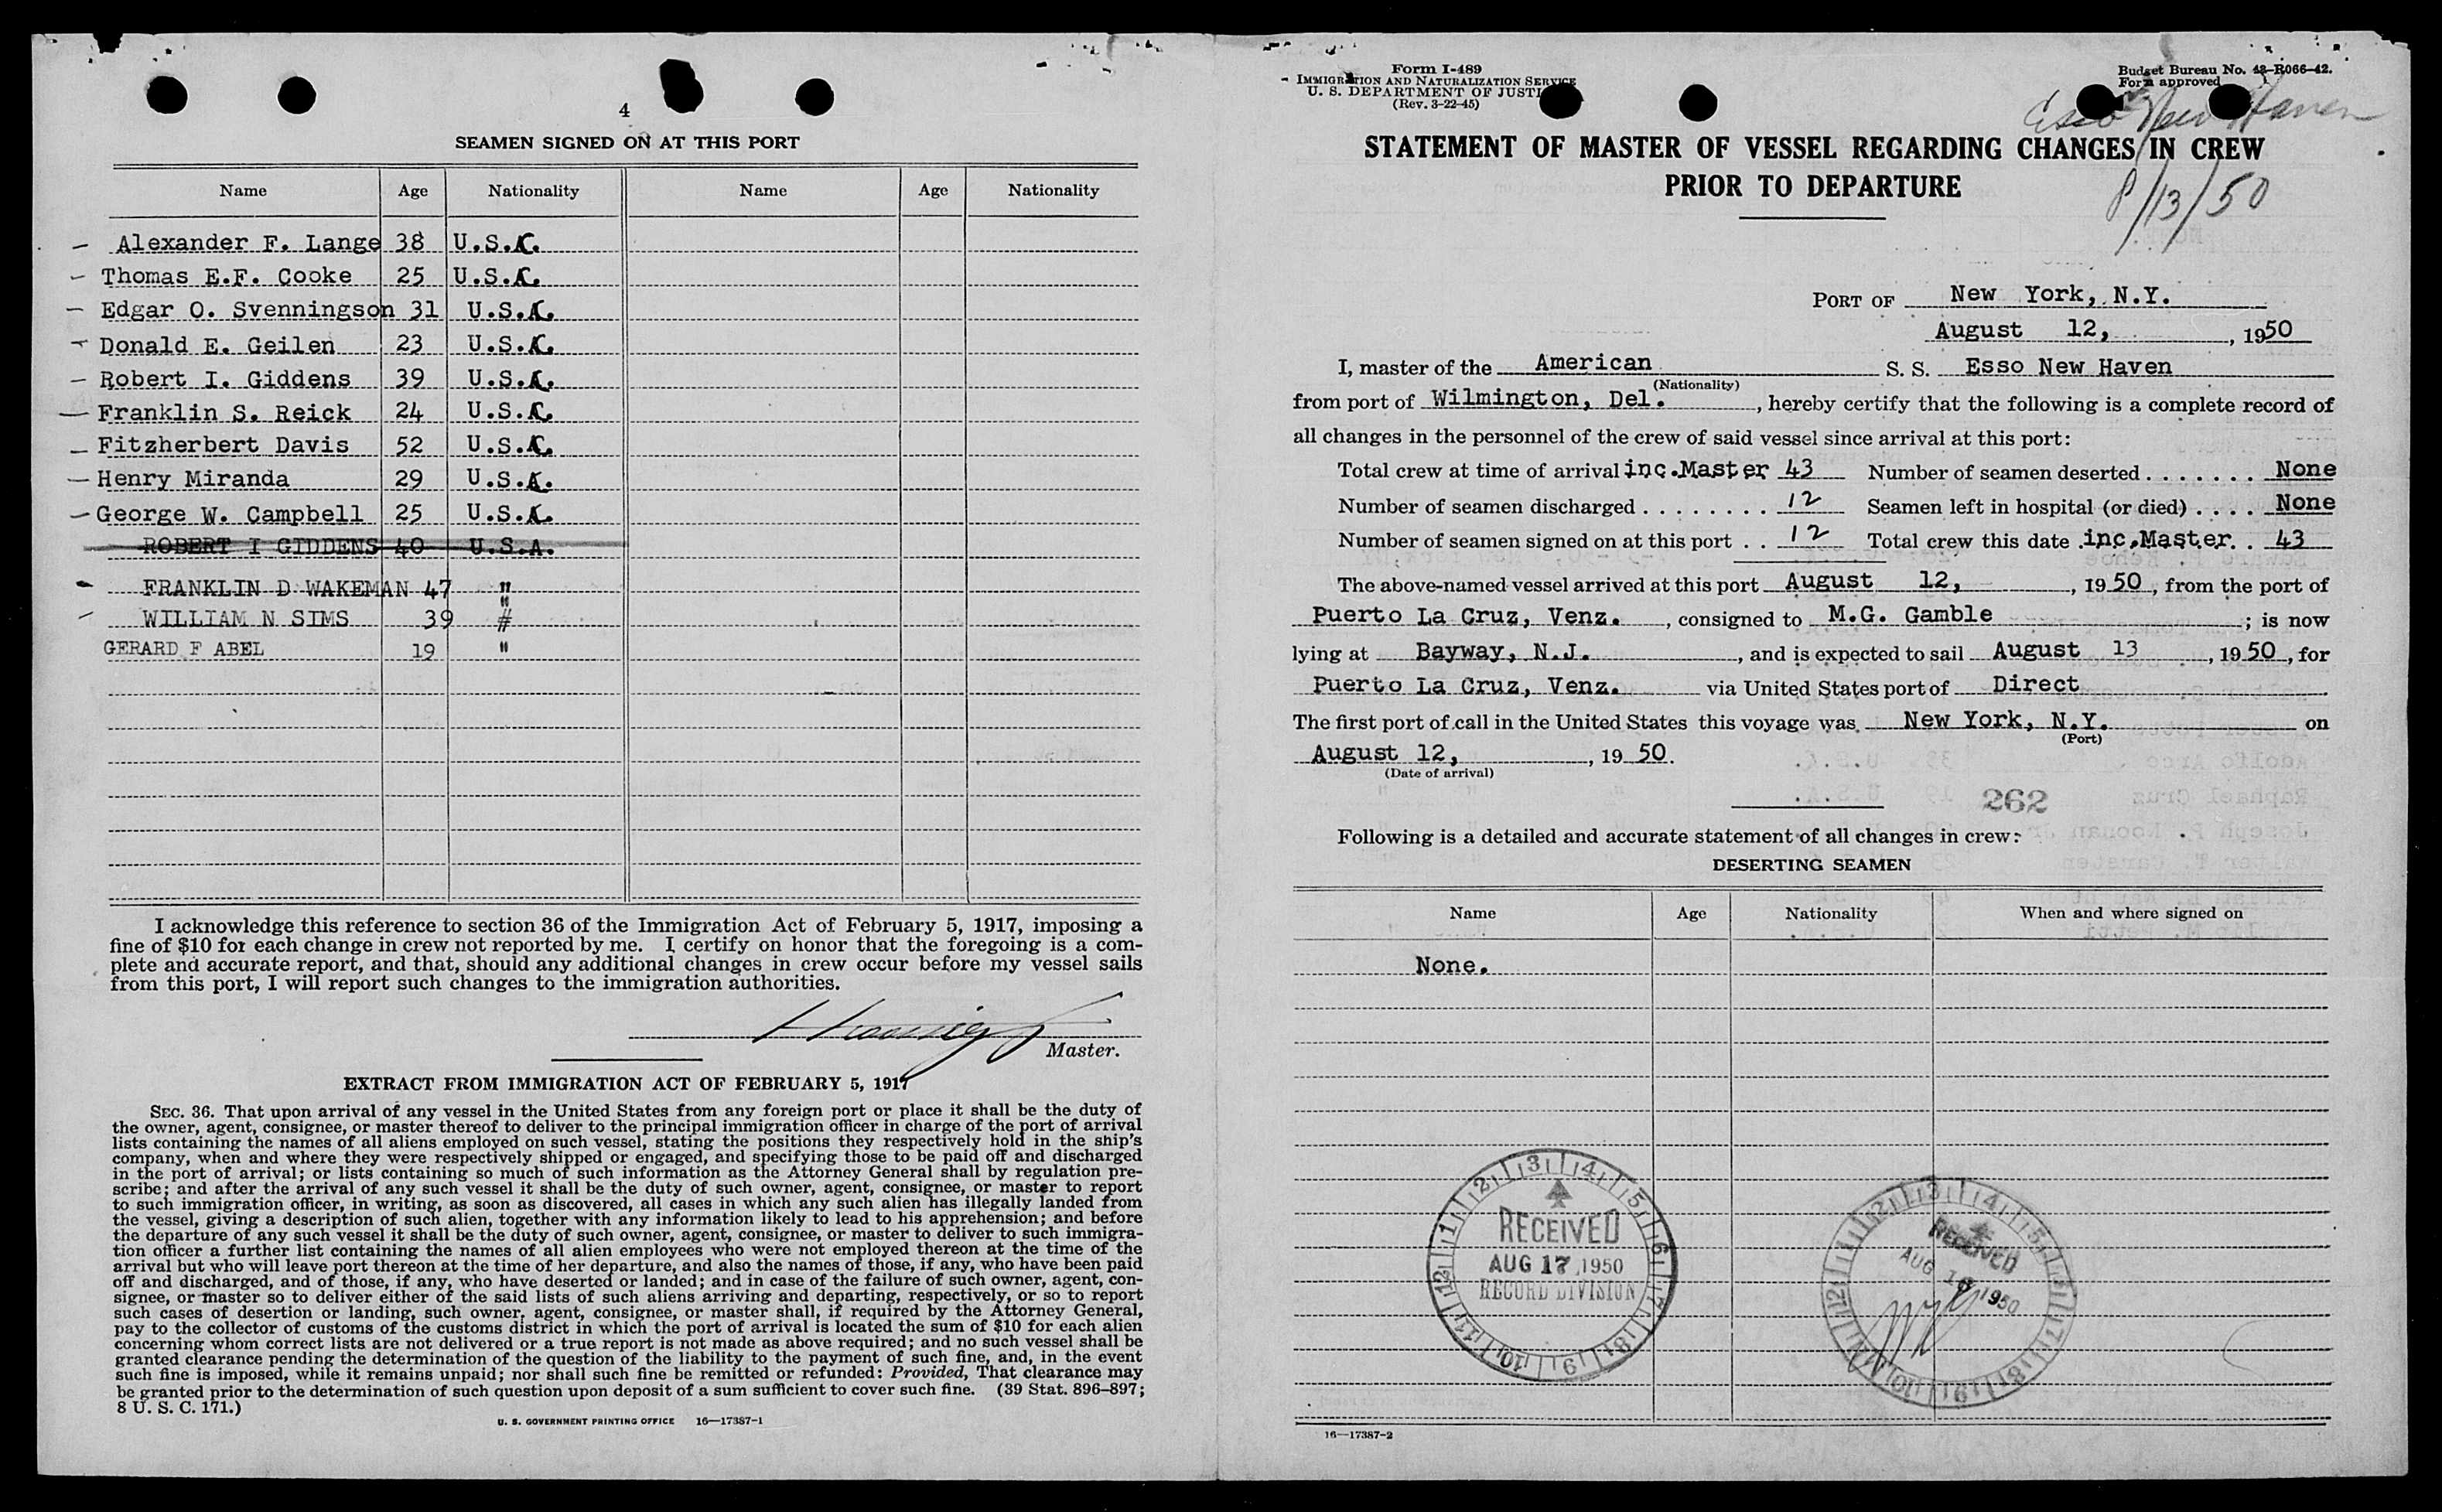 4
SEAMEN SIGNED ON AT THIS PORT
Name Age Nationality Name Age Nationality
— Alexander F. Lange 38 U.S.C.
— Thomas E.F. Cooke 25 U.S.C.
— Edgar O. Svenningson 31 U.S.C.
— Donald E. Geilen 23 U.S.C.
— Robert I. Giddens 39 U.S.C.
— Franklin S. Reick 24 U.S.C.
— Fitzherbert Davis 52 U.S.C.
— Henry Miranda 29 U.S.C.
— George W. Campbell 25 U.S.C.
ROBERT I GIDDENS 40 U.S.A.
- FRANKLIN D WAKEMAN 47 "
- WILLIAM N SIMS 39 "
GERARD F ABEL 19 "
I acknowledge this reference to section 36 of the Immigration Act of February 5, 1917, imposing a
fine of $10 for each change in crew not reported by me. I certify on honor that the foregoing is a com-
plete and accurate report, and that, should any additional changes in crew occur before my vessel sails
from this port, I will report such changes to the immigration authorities.
Master.
EXTRACT FROM IMMIGRATION ACT OF FEBRUARY 5, 1917
SEC. 36. That upon arrival of any vessel in the United States from any foreign port or place it shall be the duty of
the owner, agent, consignee, or master thereof to deliver to the principal immigration officer in charge of the port of arrival
lists containing the names of all aliens employed on such vessel, stating the positions they respectively hold in the ship's
company, when and where they were respectively shipped or engaged, and specifying those to be paid off and discharged
in the port of arrival; or lists containing so much of such information as the Attorney General shall by regulation pre-
scribe; and after the arrival of any such vessel it shall be the duty of such owner, agent, consignee, or master to report
to such immigration officer, in writing, as soon as discovered, all cases in which any such alien has illegally landed from
the vessel, giving a description of such alien, together with any information likely to lead to his apprehension; and before
the departure of any such vessel it shall be the duty of such owner, agent, consignee, or master to deliver to such immigra-
tion officer a further list containing the names of all alien employees who were not employed thereon at the time of the
arrival but who will leave port thereon at the time of her departure, and also the names of those, if any, who have been paid
off and discharged, and of those, if any, who have deserted or landed; and in case of the failure of such owner, agent, con-
signee, or master so to deliver either of the said lists of such aliens arriving and departing, respectively, or so to report
such cases of desertion or landing, such owner, agent, consignee, or master shall, if required by the Attorney General,
pay to the collector of customs of the customs district in which the port of arrival is located the sum of $10 for each alien
concerning whom correct lists are not delivered or a true report is not made as above required; and no such vessel shall be
granted clearance pending the determination of the question of the liability to the payment of such fine, and, in the event
such fine is imposed, while it remains unpaid; nor shall such fine be remitted or refunded: Provided, That clearance may
be granted prior to the determination of such question upon deposit of a sum sufficient to cover such fine. (39 Stat. 896–897;
8 U. S. C. 171.)
U. S. GOVERNMENT PRINTING OFFICE 16—17387-1
Form I-489
IMMIGRATION AND NATURALIZATION SERVICE
U. S. DEPARTMENT OF JUSTI
(Rev. 3-22-45)
Budget Bureau No. 43-R066-42.
Form approved
Esso New Haven
STATEMENT OF MASTER OF VESSEL REGARDING CHANGES IN CREW
PRIOR TO DEPARTURE
8/13/50
PORT OF New York, N.Y.
August 12, , 1950
I, master of the American S. S. Esso New Haven
(Nationality)
from port of Wilmington, Del. , hereby certify that the following is a complete record of
all changes in the personnel of the crew of said vessel since arrival at this port:
Total crew at time of arrival inc.Master 43 Number of seamen deserted . . . . . . . None
Number of seamen discharged . . . . . . . . 12 Seamen left in hospital (or died) . . . . None
Number of seamen signed on at this port . . 12 Total crew this date .inc.Master. . 43
The above-named vessel arrived at this port August 12, , 1950, from the port of
Puerto La Cruz, Venz. , consigned to M.G. Gamble ; is now
lying at Bayway, N.J. , and is expected to sail August 13 , 1950, for
Puerto La Cruz, Venz. via United States port of Direct
The first port of call in the United States this voyage was New York, N.Y. on
(Port)
August 12, , 1950.
(Date of arrival)
262
Following is a detailed and accurate statement of all changes in crew:
DESERTING SEAMEN
Name Age Nationality When and where signed on
None.
RECEIVED
AUG 17 1950
RECORD DIVISION
1 2 3 4 5 6 7 8 9 10 11 12
RECEIVED
AUG 16 1950
1 2 3 4 5 6 7 8 9 10 11 12
16—17387-2